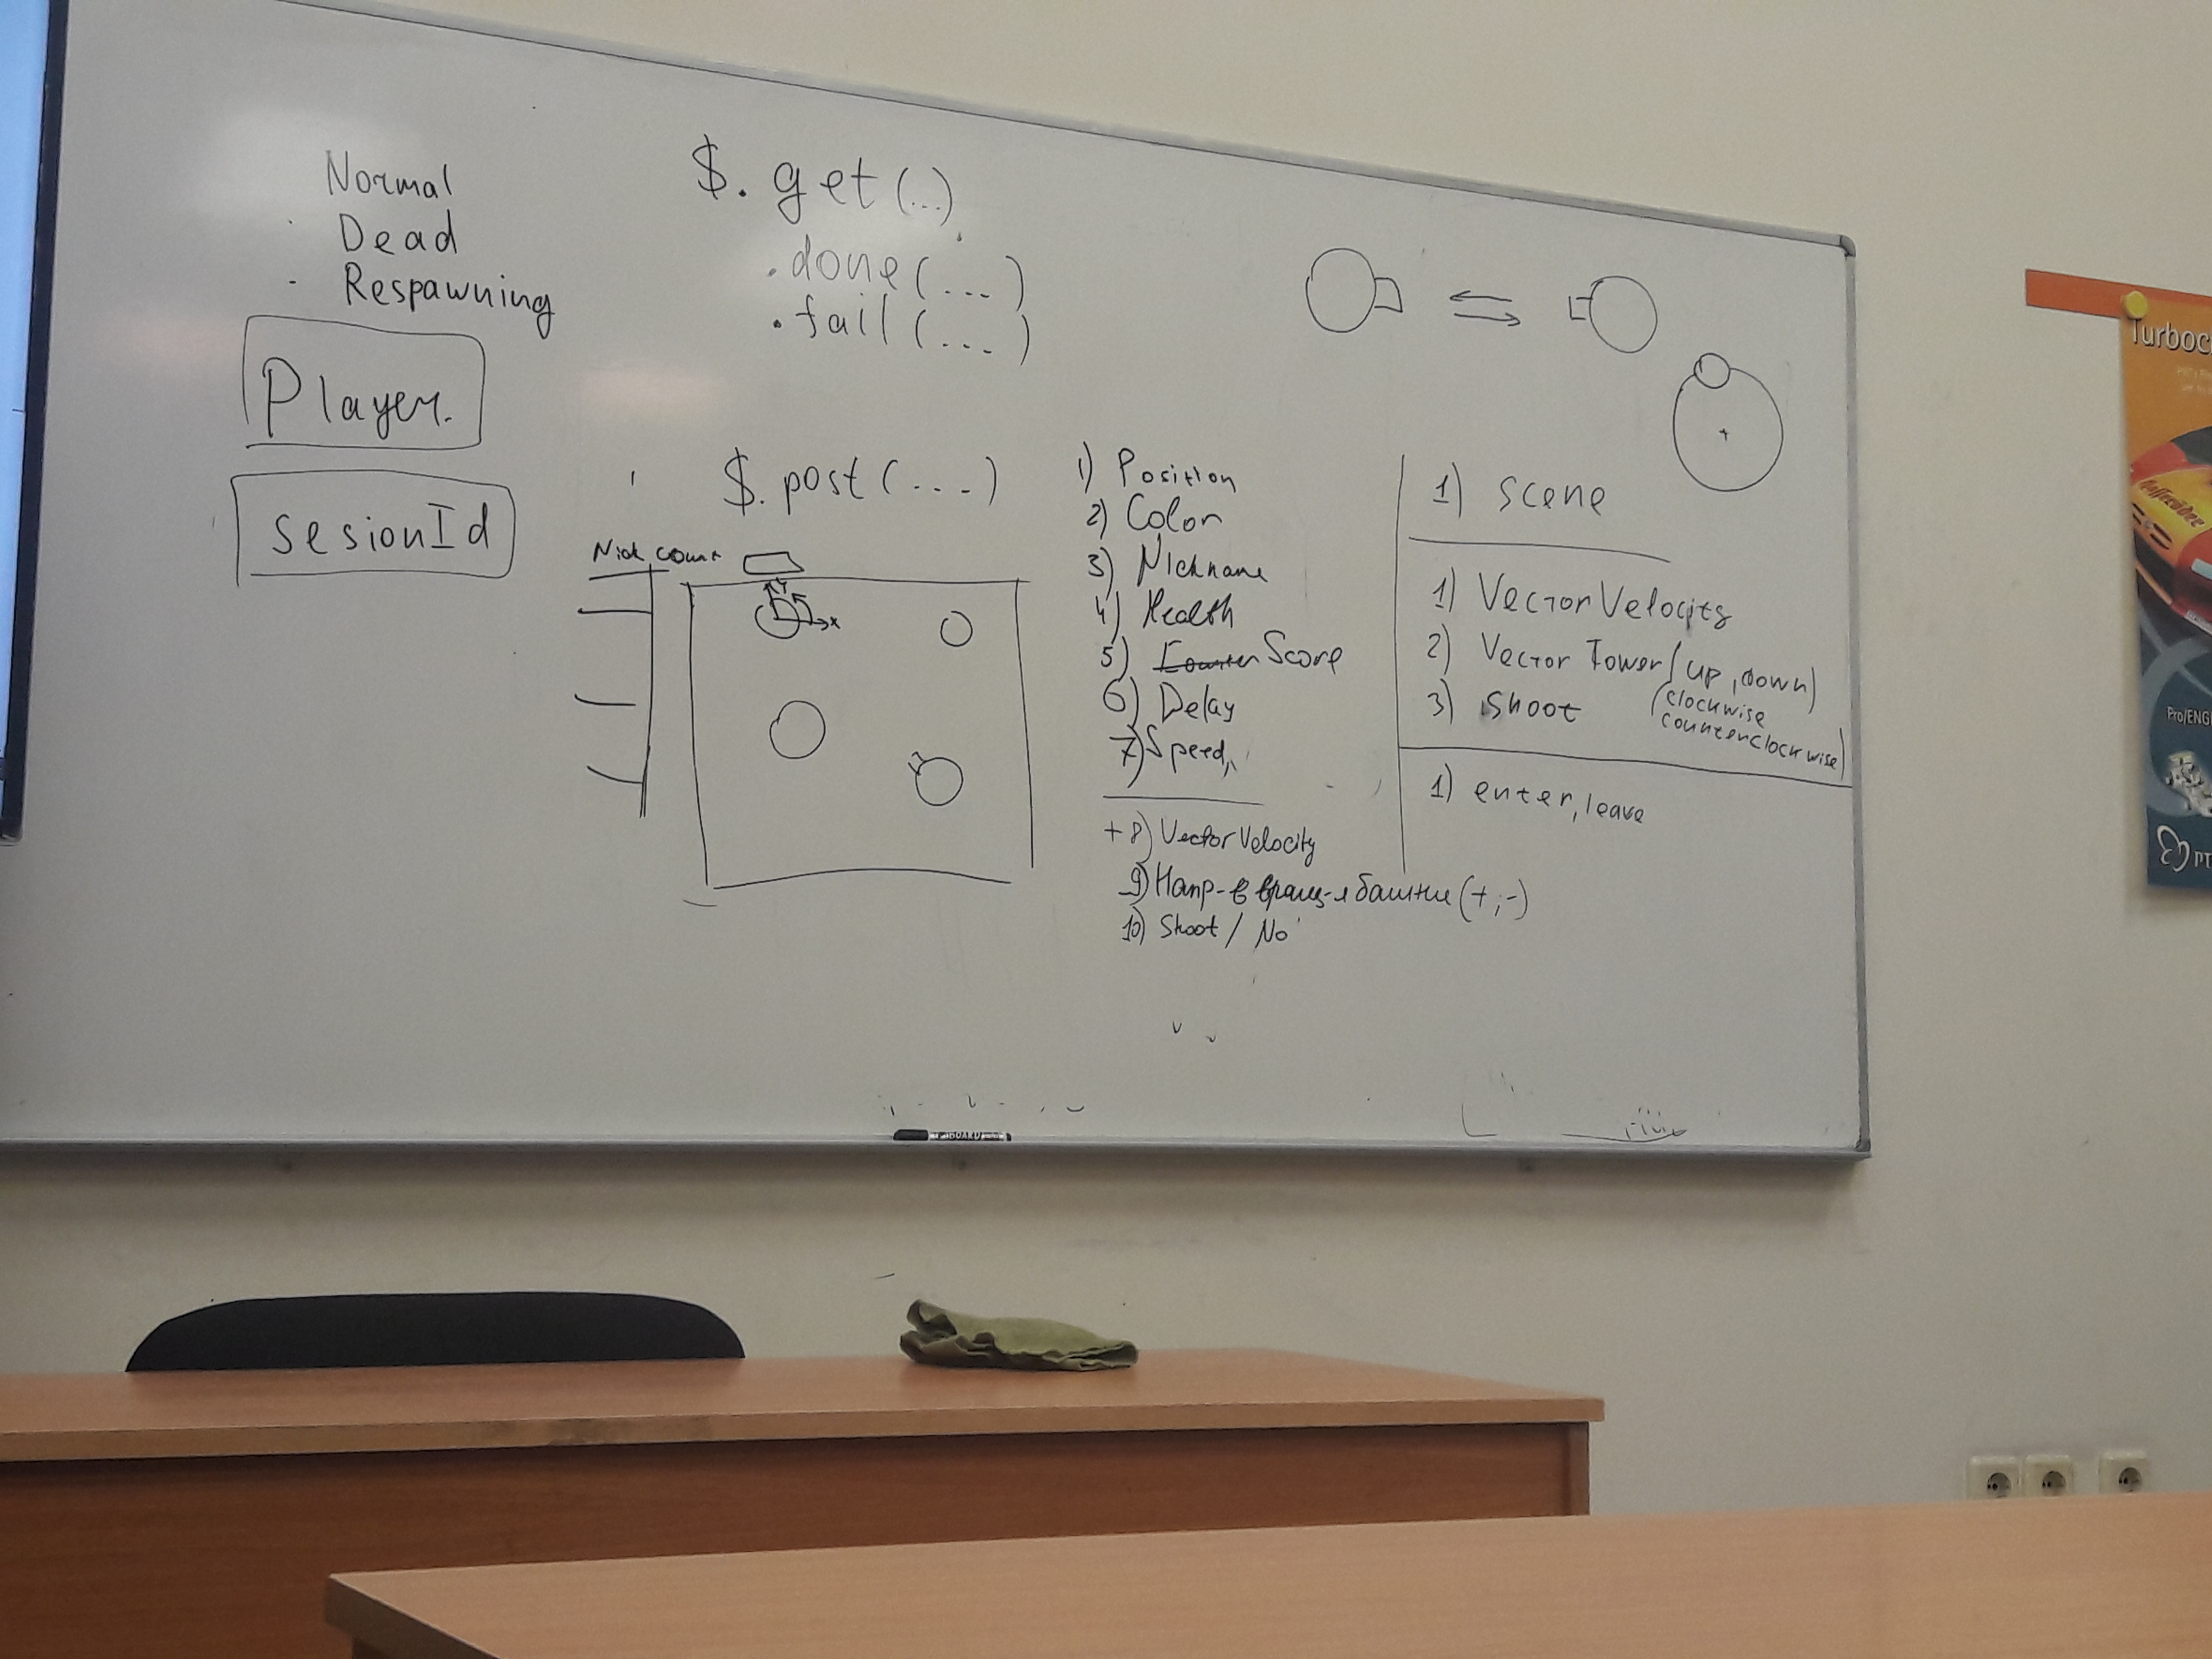 Normal
Dead
Respawning
Player.
sesionId
$.get(...)
.done(...)
.fail(...)
$.post(...)
Nick count
Y
x
1) Position
2) Color
3) Nickname
4) Health
5) Counter Score
6) Delay
7) Speed,
+8) VectorVelocity
9) Напр-е вращ-я башни (+,-)
10) Shoot / No
1) scene
1) VectorVelocity
2) Vector Tower (up, down)
(clockwise
counterclockwise)
3) shoot
1) enter, leave
BOARD
Turboc
Pro/ENG
PT